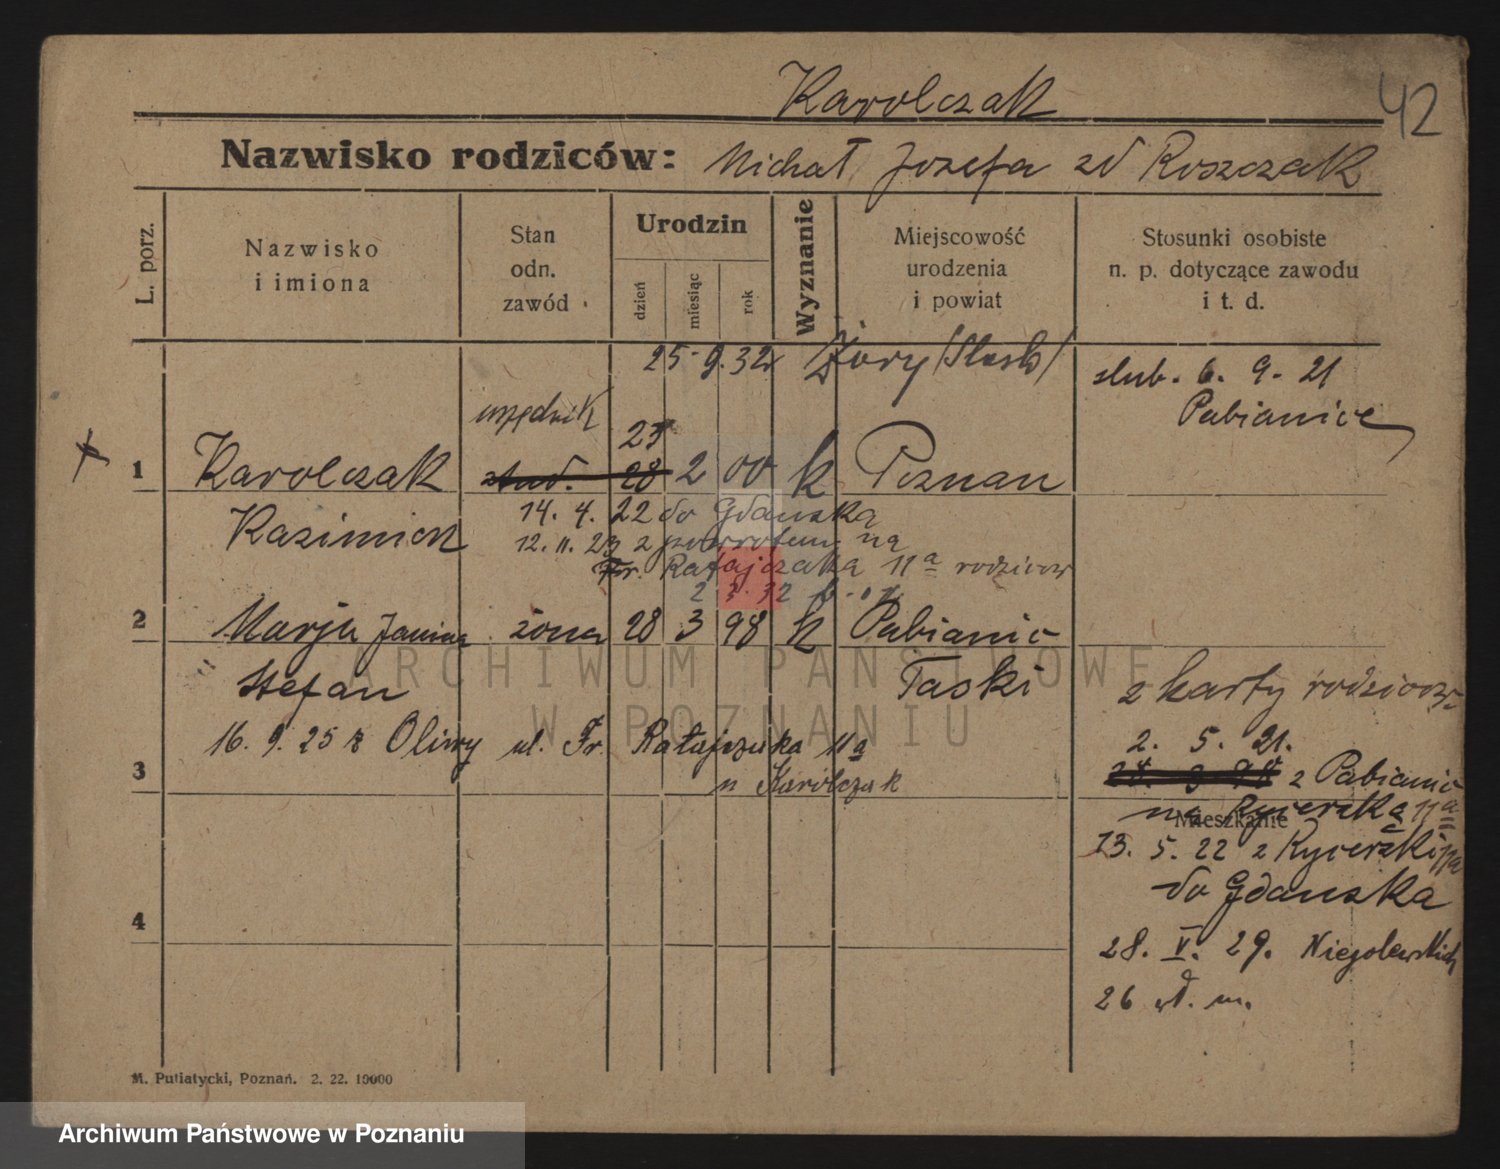 Karolczak
42
Nazwisko rodziców: Michał, Jozefa zd Roszczak
L. porz.
Nazwisko
i imiona
Stan
odn.
zawód
Urodzin
dzień
miesiąc
rok
Wyznanie
Miejscowość
urodzenia
i powiat
Stosunki osobiste
n. p. dotyczące zawodu
i t. d.
25. 9. 32 Żory /Slask/
slub. 6. 9. 21
Pabianice
urzędnik
23
1 Karolczak stud. 28 2 00 k Poznan
Kazimierz 14. 4. 22 do Gdanska
12. 11. 23 z powrotem na
Fr. Ratajczaka 11a rodzicow
2 32
2 Marja Janina żona 28 3 98 k Pabianic
Stefan
Łaski
z karty rodzicow
16. 9. 25 z Oliwy ul. Fr. Ratajczaka 11a
2. 5. 21.
3
u Karolczak
z Pabianic
na Rycerską 11a
Mieszkanie
13. 5. 22 z Rycerski 11a
do Gdanska
4
28. V. 29. Niegolewskich
26
M. Putiatycki, Poznań. 2. 22. 10000
ARCHIWUM PAŃSTWOWE
W POZNANIU
Archiwum Państwowe w Poznaniu